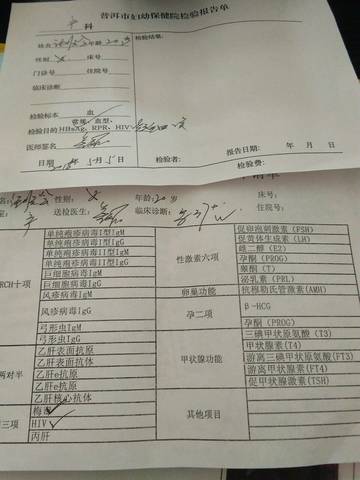 普洱市妇幼保健院检验报告单
科
姓名 年龄 20 岁
性别: 女 床号
门诊号 住院号
临床诊断:
检验标本 血
常规、血型、
检验目的HBsAg、RPR、HIV
医师签名
日期 2018年 5月 5日
检验结果:
报告日期: 年 月 日
检验者: 检验费:
性别: 女 年龄: 20岁 床号:
送检医生: 临床诊断: 住院号:
单纯疱疹病毒I型IgM
单纯疱疹病毒I型IgG
单纯疱疹病毒II型IgM
单纯疱疹病毒II型IgG
巨细胞病毒IgM
RCH十项 巨细胞病毒IgG
风疹病毒IgM
风疹病毒IgG
弓形虫IgM
弓形虫IgG
乙肝表面抗原
两对半 乙肝表面抗体
乙肝e抗原
乙肝e抗体
乙肝核心抗体
梅毒
三项 HIV
丙肝
性激素六项
促卵泡刺激素(FSH)
促黄体生成素(LH)
雌二醇(E2)
孕酮(PROG)
睾酮(T)
泌乳素(PRL)
卵巢功能 抗穆勒氏管激素(AMH)
孕二项
β-HCG
孕酮(PROG)
甲状腺功能
三碘甲状腺原氨酸(T3)
甲状腺素(T4)
游离三碘甲状原氨酸(FT3)
游离甲状腺素(FT4)
促甲状腺激素(TSH)
其他项目